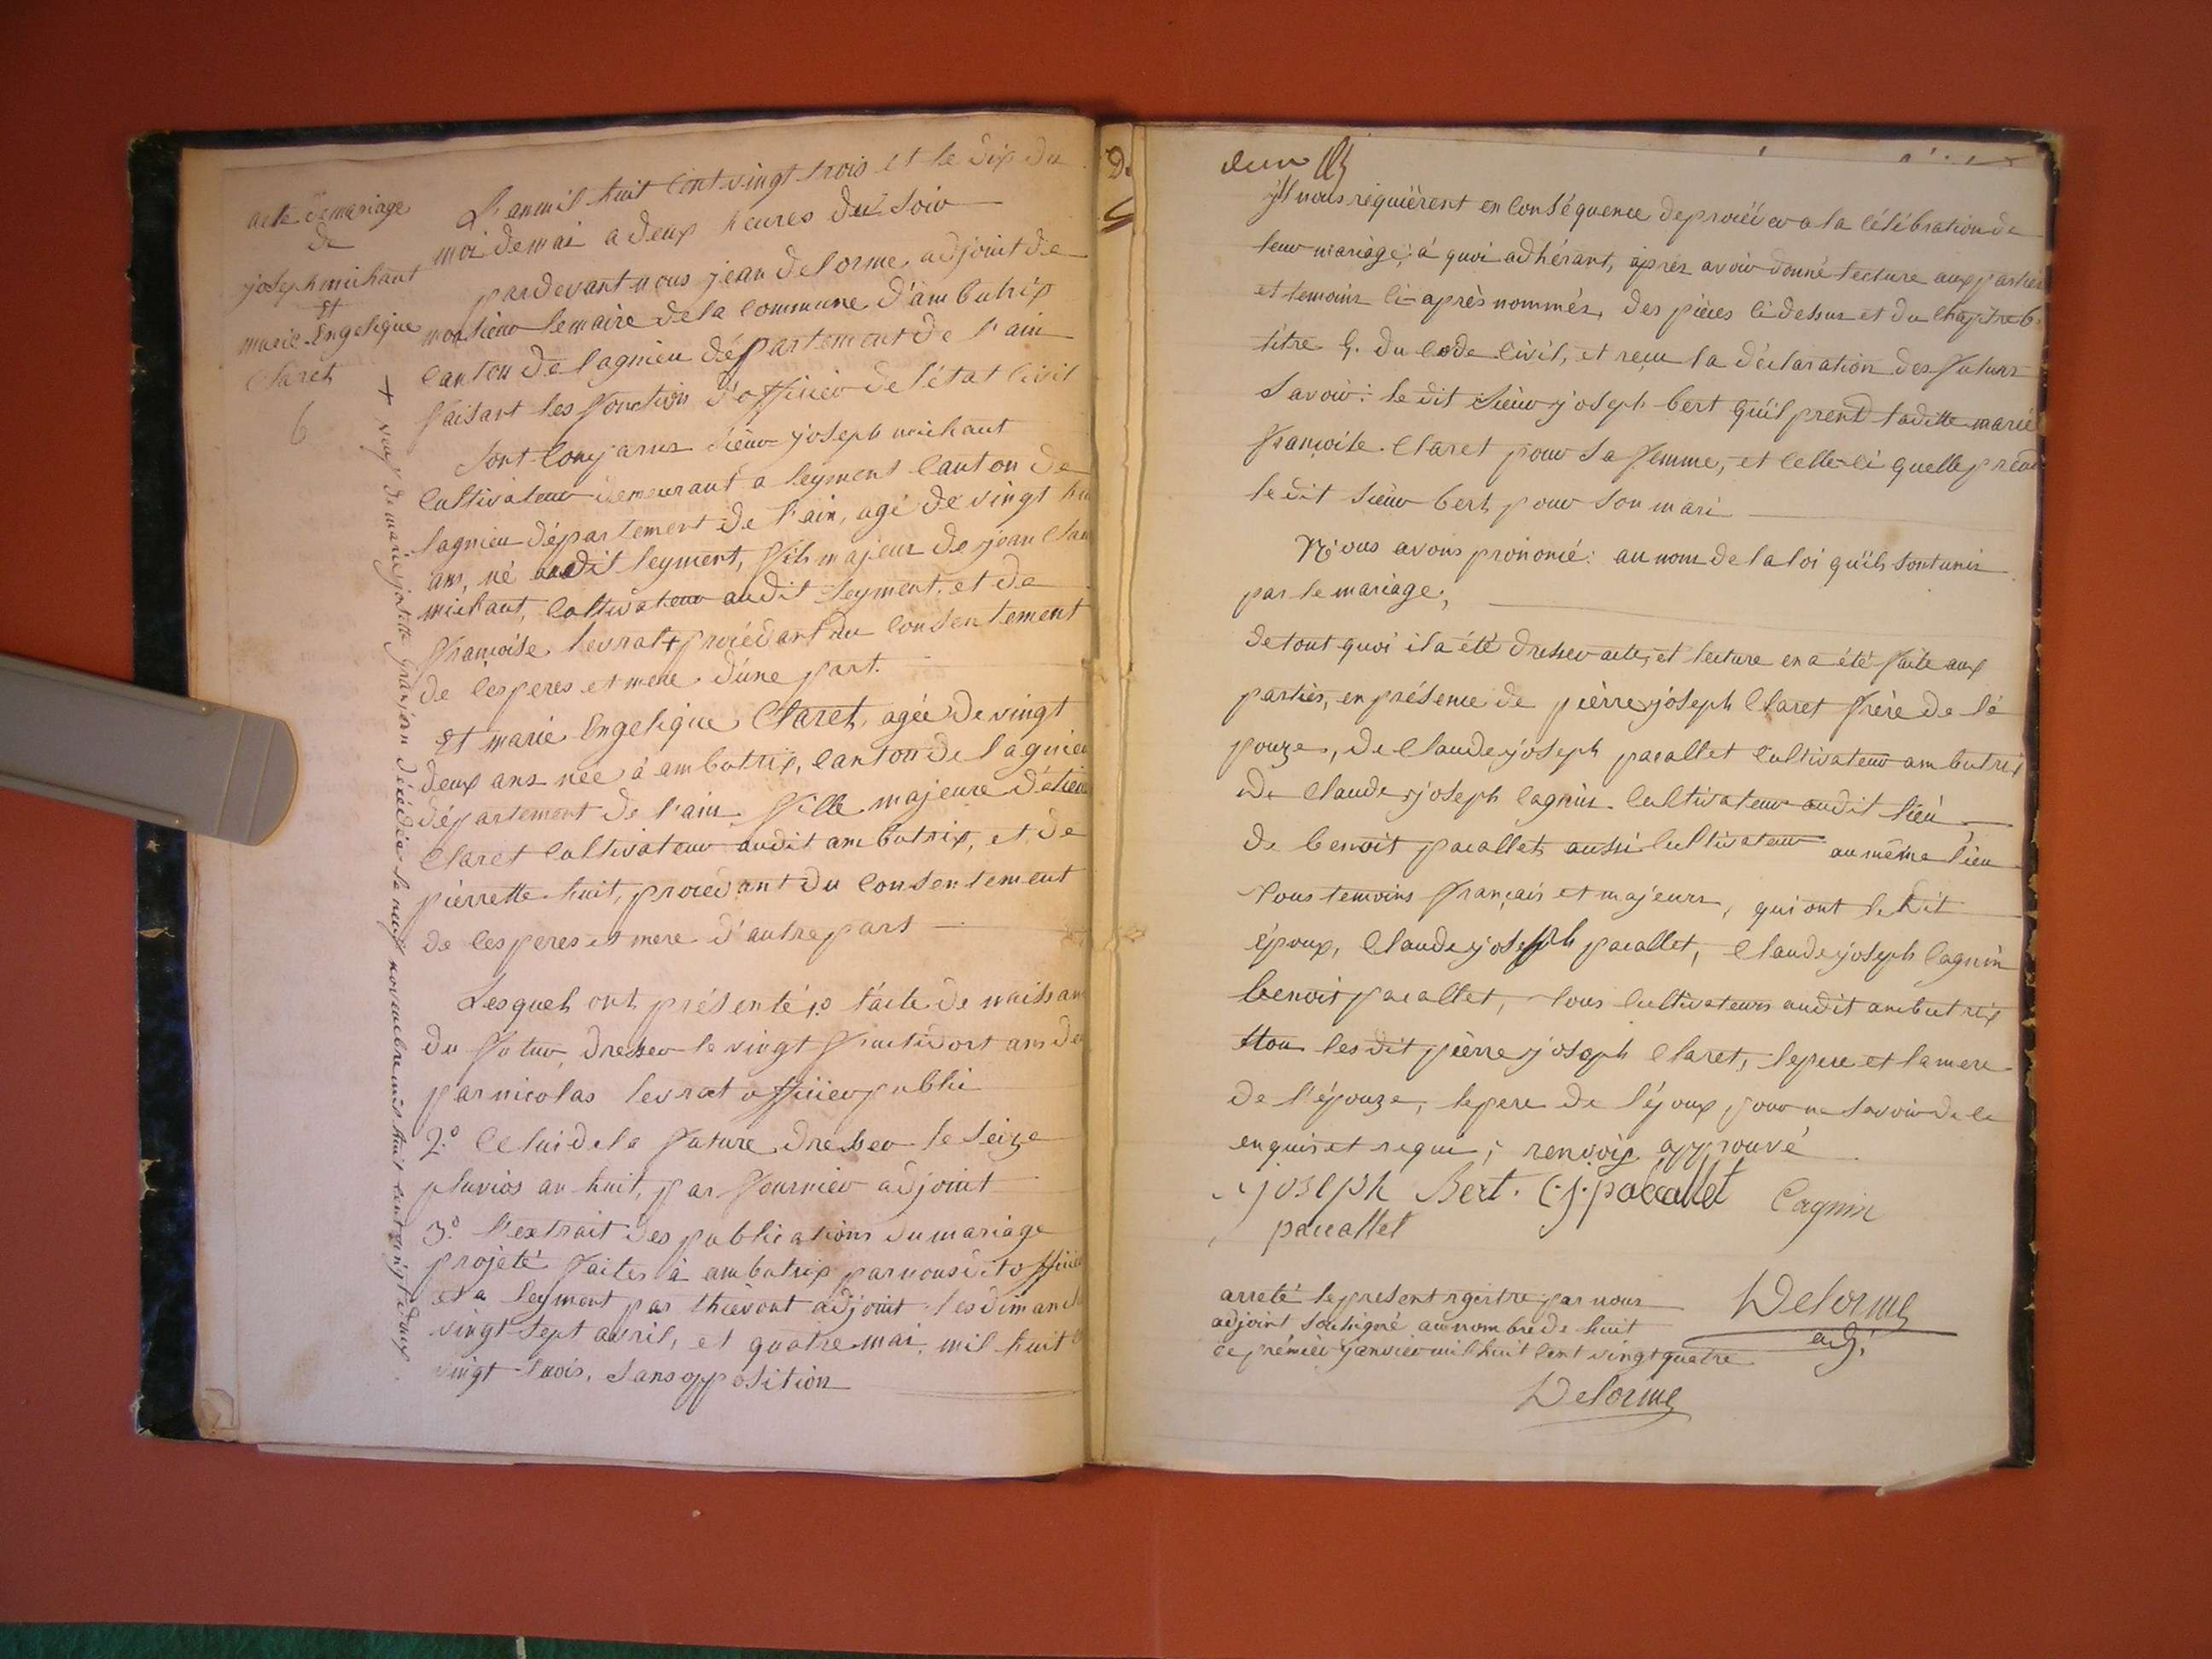 acte de mariage
de
joseph michaut
et
marie Engelique
Claret
6
L'an mil huit cent vingt trois et le dix du
moi de mai a deux heures du soir
pardevant nous jean delorme, adjoint de
monsieur le maire de la commune d'ambutrix
canton de lagnieu département de l'ain
faisant les fonction d'officier de l'état civil
sont comparus sieur joseph michaut
cultivateur demeurant a leyment canton de
lagnieu département de l'ain, agé de vingt hu
ans, né audit leyment, fils majeur de jean clau
michaut, cultivateur audit leyment, et de
françoise levrat + procédant du consentement
de ces peres et mere d'une part.
Et marie Engelique Claret, agée de vingt
deux ans née à ambutrix, canton de lagnieu
département de l'ain, fille majeure d'étien
Claret cultivateur audit ambutrix, et de
pierrette huit, procedant du consentement
de ces peres et mere d'autre part
Lesquels ont présenté 1º l'acte de naissan
du futur, dresser le vingt fructidort ans deu
par nicolas levrat officier public
2º celui de la future dresser le seize
pluvios an huit, par fournier adjoint
3º l'extrait des publications du mariage
projeté faites à ambutrix par nous dit officie
et a leyment par thievont adjoint les dimanch
vingt sept avril, et quatre mai, mil huit c
vingt trois, sans opposition
+ veuf de marie josette granjon décédée le neuf novembre mil huit cent vingt deux
De
deux
ils nous requièrent en conséquence de procéder a la célébration de
leur mariage; à quoi adhérant, après avoir donné lecture aux parties
et temoins ci-après nommés, des pièces ci dessus et du chapitre 6.
titre 5. du code civil, et reçu la déclaration des futurs
savoir: le dit sieur joseph bert qu'il prend laditte marie
françoise Claret pour sa femme, et celle-ci quelle prend
le dit sieur bert pour son mari
Nous avons prononcé: au nom de la loi qu'ils sont unis
par le mariage;
de tout quoi il a été dresser acte, et lecture en a été faite aux
parties, en présence de pierre joseph Claret frère de l'é
pouze, de Claude joseph pacallet cultivateur ambutrix
de Claude joseph cagnin cultivateur audit lieu
de benoit pacallet aussi cultivateur au même lieu
tous temoins français et majeurs, qui ont le dit
époux, Claude joseph pacallet, Claude joseph Cagnin
benoit pacallet, tous cultivateurs audit ambutrix
non les dit pierre joseph Claret, le pere et la mere
de l'épouze, le pere de l'époux, pour ne savoir de ce
enquis et requi; renvoix approuvé
joseph Bert. C.j. pacallet Cagnin
pacallet
arreté le present rgistre par nous
adjoint soussigné au nombre de huit
ce prémier janvier mil huit cent vingt quatre
Delorme
adj.
Delorme